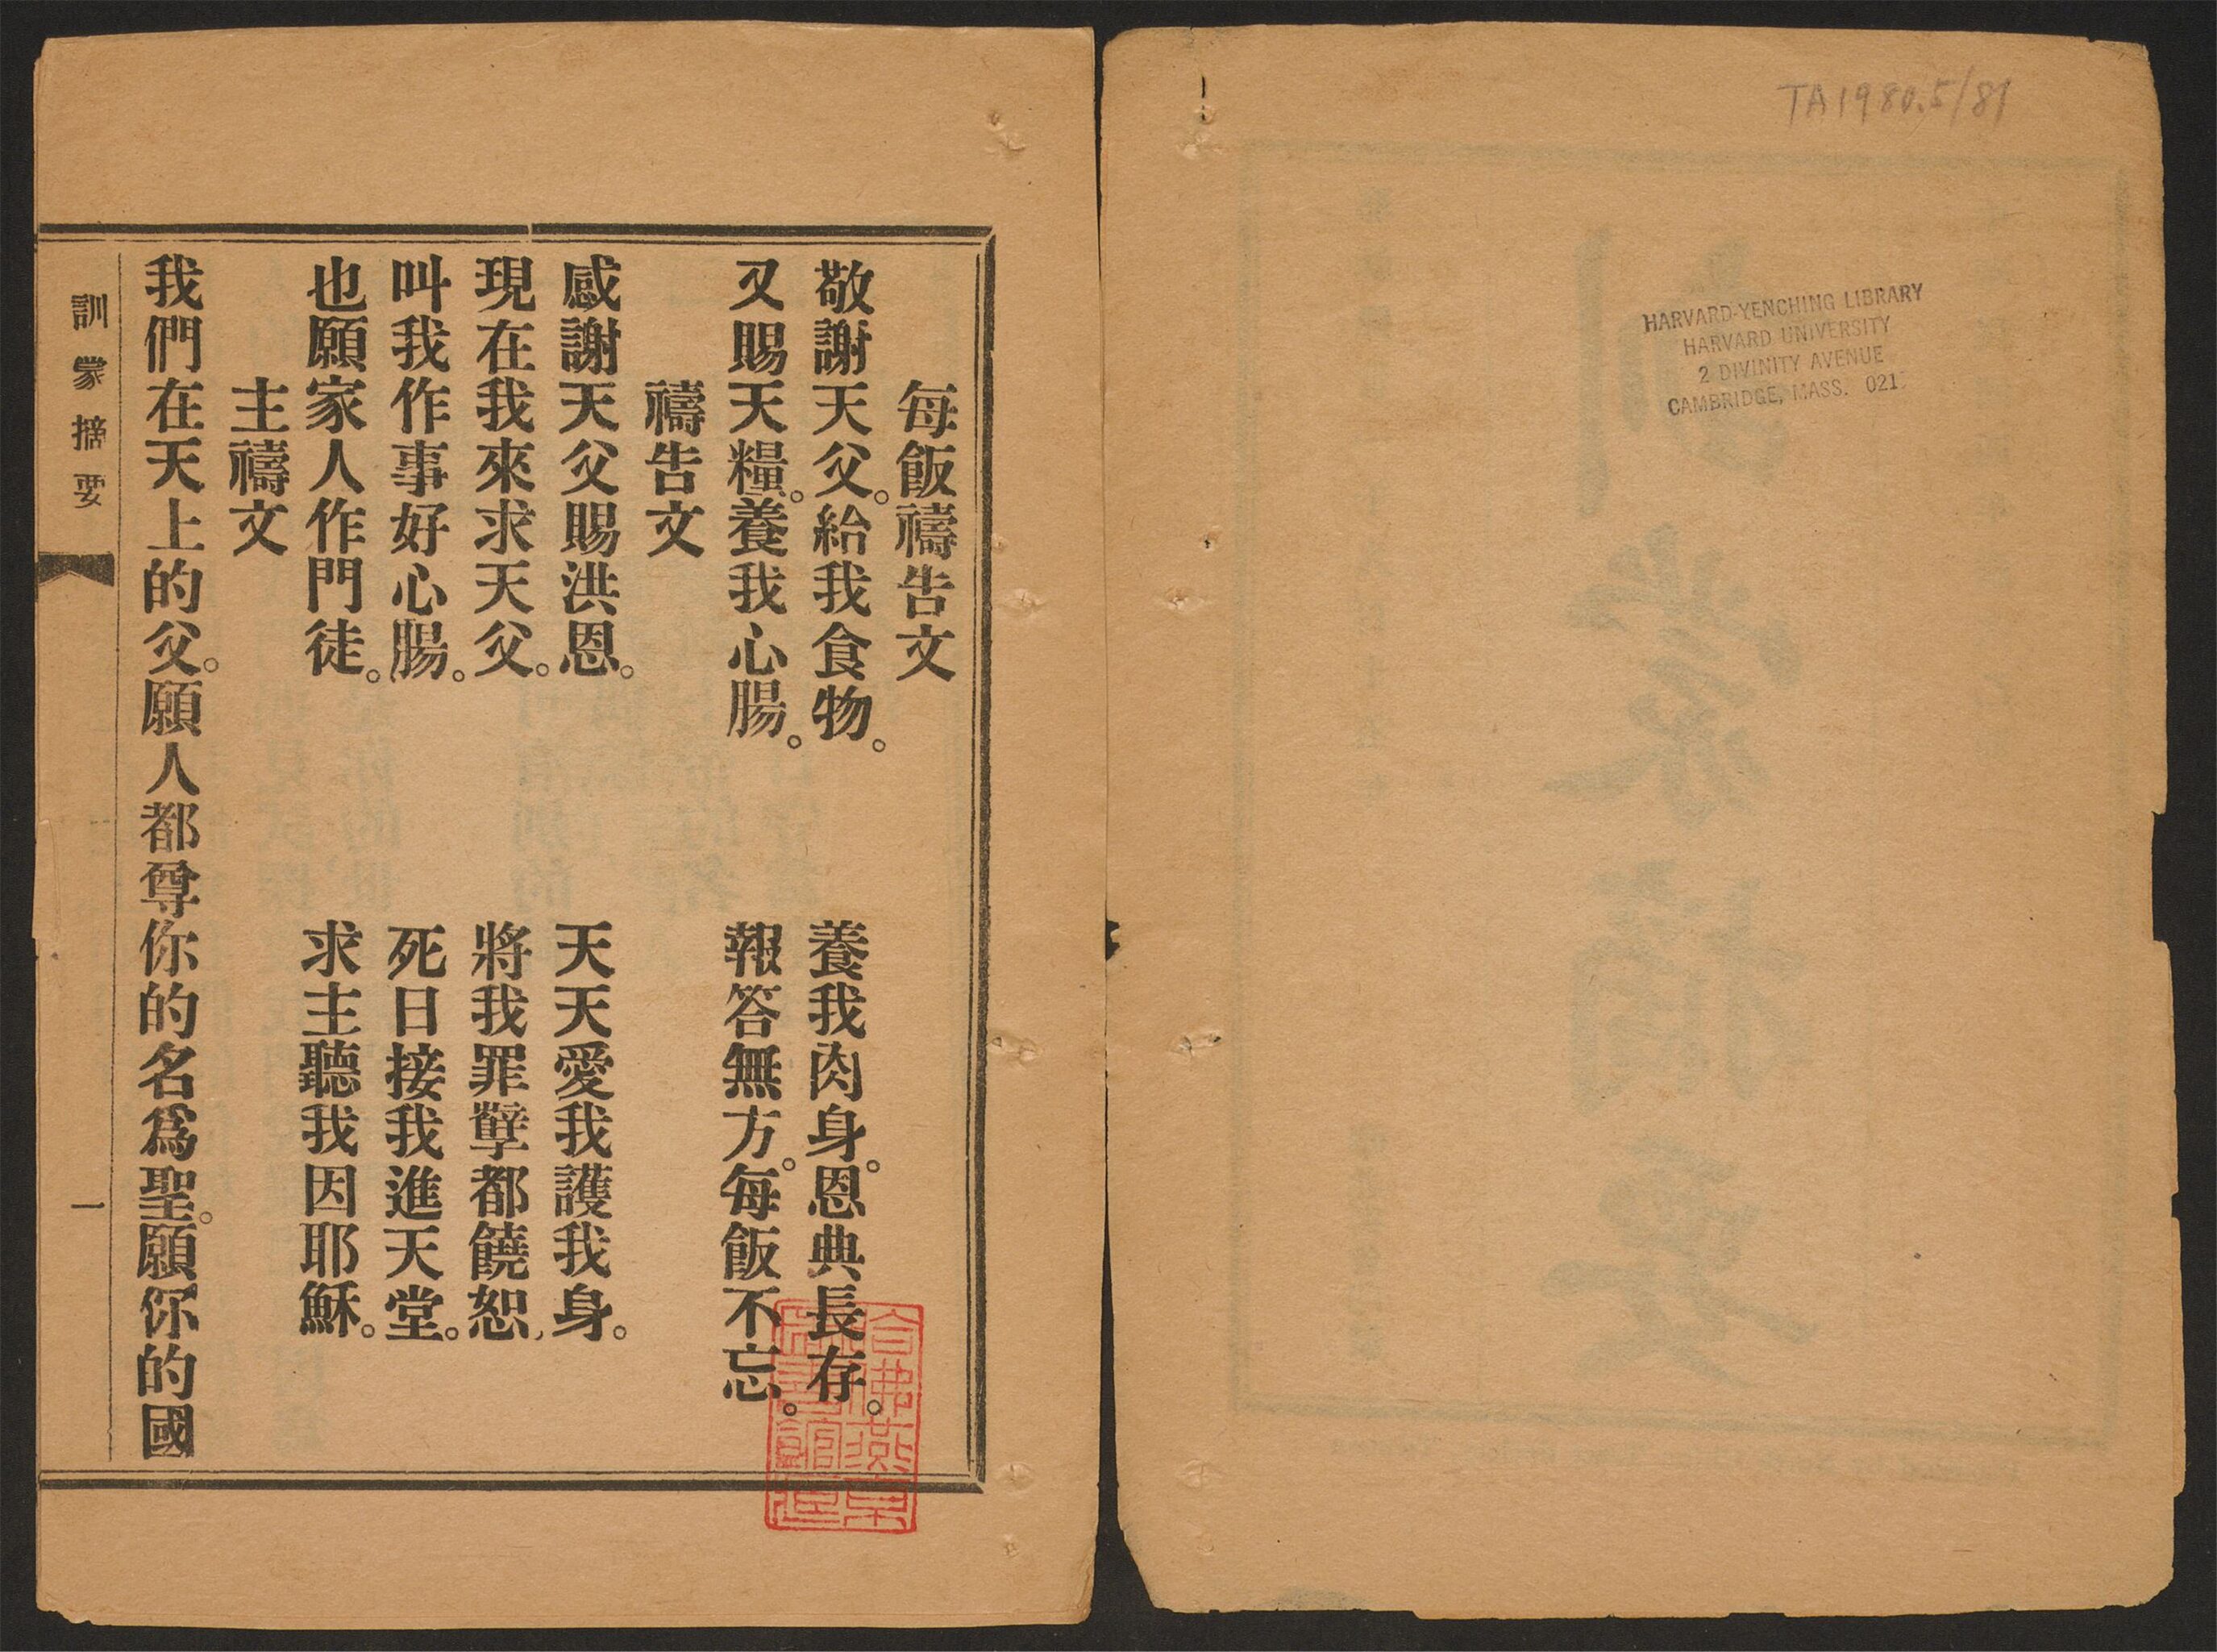 TA1980.5/81
HARVARD-YENCHING LIBRARY
HARVARD UNIVERSITY
2 DIVINITY AVENUE
CAMBRIDGE, MASS. 021
每飯禱告文
敬謝天父。給我食物。 養我肉身。恩典長存。
又賜天糧。養我心腸。 報答無方。每飯不忘。
禱告文
感謝天父賜洪恩。 天天愛我護我身。
現在我來求天父。 將我罪孽都饒恕、
叫我作事好心腸。 死日接我進天堂。
也願家人作門徒。 求主聽我因耶穌。
主禱文
我們在天上的父。願人都尊你的名爲聖。願你的國
訓蒙摘要
一